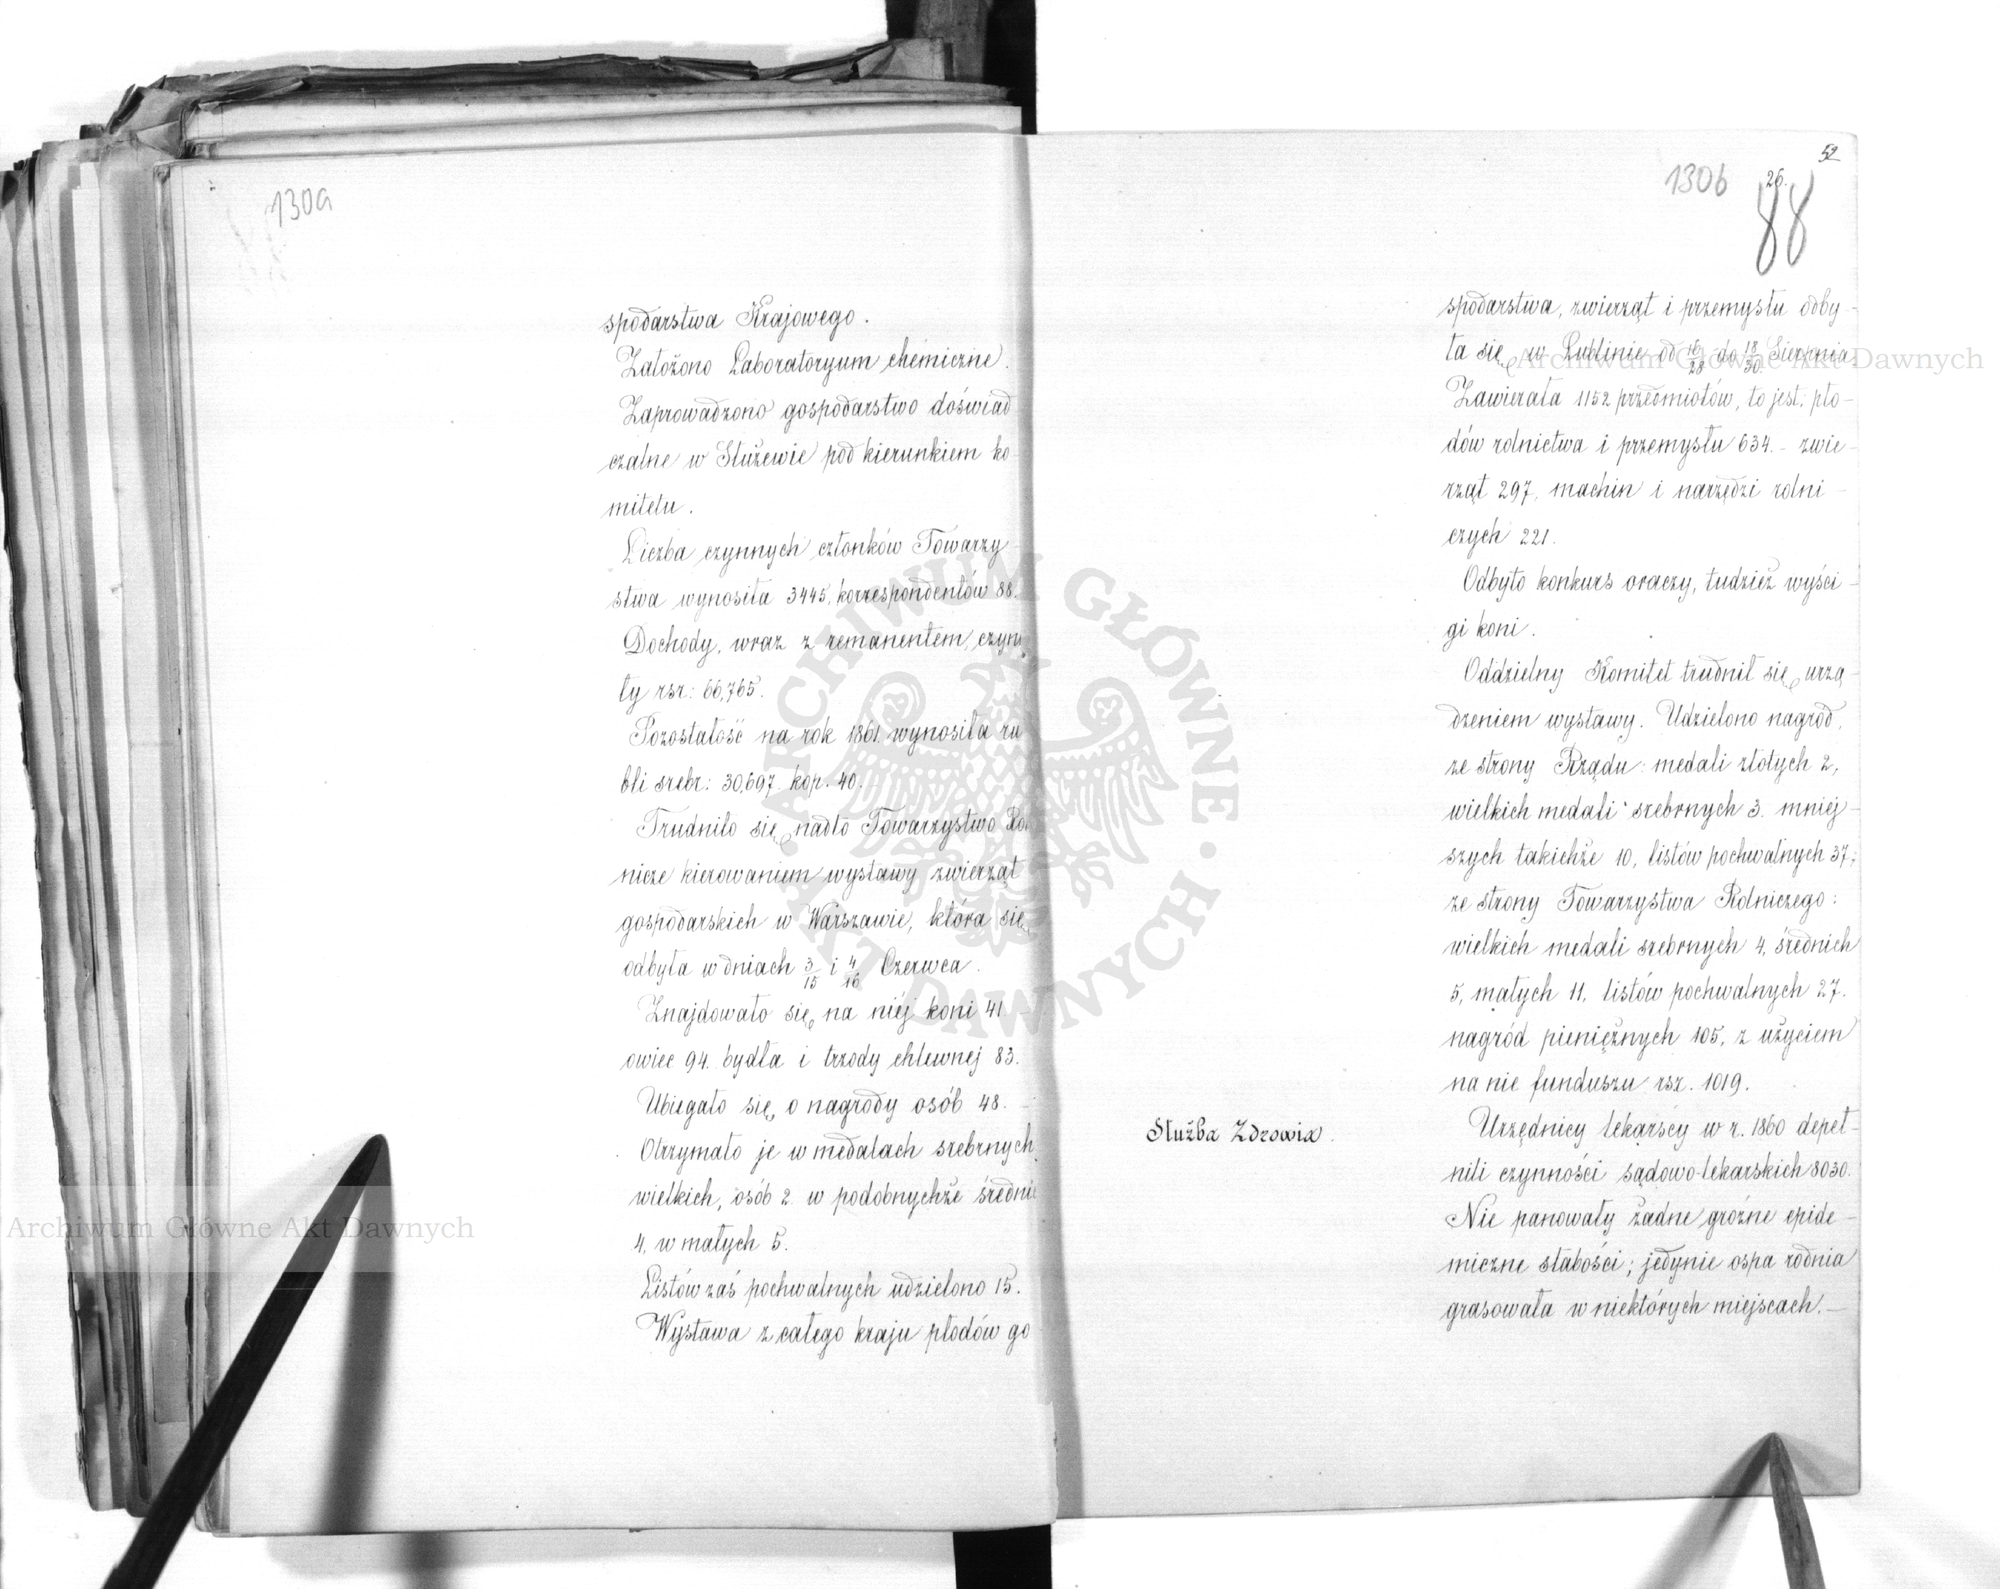 130a
spodarstwa Krajowego.
Założono Laboratoryum chemiczne.
Zaprowadzono gospodarstwo doświad
czalne w Służewie pod kierunkiem ko
mitetu.
Liczba czynnych członków Towarzy
stwa wynosiła 3445, korrespondentów 88.
Dochody, wraz z remanentem, czyni
ły rsr: 66,765.
Pozostałość na rok 1861 wynosiła ru
bli srebr: 30,697 kop. 40.
Trudniło się nadto Towarzystwo Rol
nicze kierowaniem wystawy zwierząt
gospodarskich w Warszawie, która się
odbyła w dniach 3/15 i 4/16 Czerwca.
Znajdowało się na niéj koni 41 –
owiec 94. bydła i trzody chlewnej 83.
Ubiegało się o nagrody osób 48. –
Otrzymało je w medalach srebrnych
wielkich, osób 2. w podobnychże średni
4, w małych 5.
Listów zaś pochwalnych udzielono 15.
Wystawa z całego kraju płodów go
52
130b
26.
88
spodarstwa, zwierząt i przemysłu odby-
ła się w Lublinie od 16/28 do 18/30 Sierpnia
Zawierała 1152 przedmiotów, to jest: pło-
dów rolnictwa i przemysłu 634. – zwie-
rząt 297, machin i narzędzi rolni-
czych 221.
Odbyto konkurs oraczy, tudzież wyści-
gi koni.
Oddzielny Komitet trudnił się urzą-
dzeniem wystawy. Udzielono nagród,
ze strony Rządu: medali złotych 2,
wielkich medali srebrnych 3. mniéj-
szych takichże 10, listów pochwalnych 37;
ze strony Towarzystwa Rolniczego:
wielkich medali srebrnych 4, średnich
5, małych 11, listów pochwalnych 27.
nagród pieniężnych 105, z użyciem
na nie funduszu rsr. 1019.
Służba Zdrowia.
Urzędnicy lekarscy w r. 1860 dopeł-
nili czynności sądowo-lekarskich 8030.
Nie panowały żadne groźne epide-
miczne słabości; jedynie ospa rodnia
grasowała w niektórych miejscach. –
Archiwum Główne Akt Dawnych
Archiwum Główne Akt Dawnych
ARCHIWUM GŁÓWNE
AKT DAWNYCH